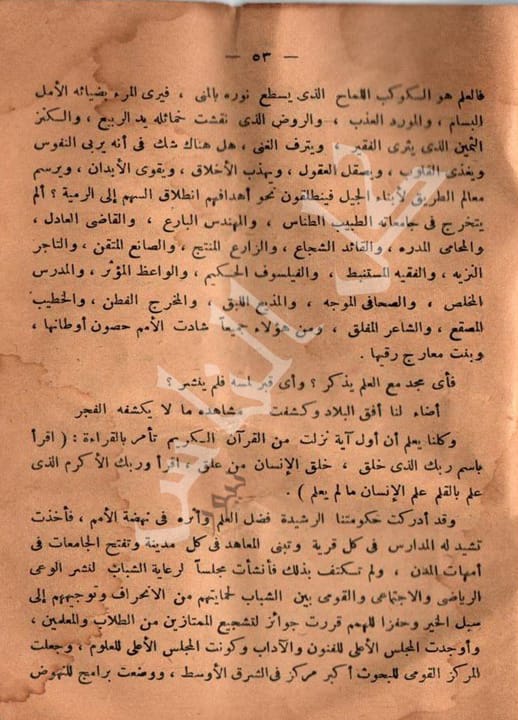 — ٥٣ —
فالعلم هو الكوكب اللماح الذى يسطع نوره بالمنى ، فيرى المرء بضيائه الأمل
البسام ، والمورد العذب ، والروض الذى نقشت خمائله يد الربيع ، والكنز
الثمين الذى يثرى الفقير ويترف الغنى ، هل هناك شك فى أنه يربى النفوس
ويغذى القلوب ، ويصقل العقول ، ويهذب الأخلاق ، ويقوى الأبدان ، ويرسم
معالم الطريق لأبناء الجيل فينطلقون نحو أهدافهم انطلاق السهم إلى الرمية ؟ ألم
يتخرج فى جامعاته الطبيب النطاس ، والمهندس البارع ، والقاضى العادل ،
والمحامى المدره ، والقائد الشجاع ، والزارع المنتج ، والصانع المتقن ، والتاجر
النزيه ، والفقيه المستنبط ، والفيلسوف الحكيم ، والواعظ المؤثر ، والمدرس
المخلص ، والصحافى الموجه ، والمذيع اللبق ، والمخرج الفطن ، والخطيب
المصقع ، والشاعر المفلق ، ومن هؤلاء جميعاً شادت الأمم حصون أوطانها ،
وبنت معارج رقيها .
فأى مجد مع العلم يذكر ؟ وأى قبر لمسه فلم ينشر ؟
أضاء لنا أفق البلاد وكشفت مشاهده ما لا يكشفه الفجر
وكلنا يعلم أن أول آية نزلت من القرآن الكريم تأمر بالقراءة : ( اقرأ
باسم ربك الذى خلق ، خلق الإنسان من علق ، اقرأ وربك الأكرم الذى
علم بالقلم علم الإنسان ما لم يعلم ) .
وقد أدركت حكومتنا الرشيدة فضل العلم وأثره فى نهضة الأمم ، فأخذت
تشيد له المدارس فى كل قرية وتبنى المعاهد فى كل مدينة وتفتح الجامعات فى
أمهات المدن ، ولم تكتف بذلك فأنشأت مجلساً لرعاية الشباب لنشر الوعى
الرياضى والاجتماعى والقومى بين الشباب لحمايتهم من الانحراف وتوجيههم إلى
سبل الخير وحفزا للهمم قررت جوائز لتشجيع الممتازين من الطلاب والمعلمين ،
وأوجدت المجلس الأعلى للفنون والآداب وكونت المجلس الأعلى للعلوم ، وجعلت
المركز القومى للبحوث أكبر مركز فى الشرق الأوسط ، ووضعت برامج للنهوض